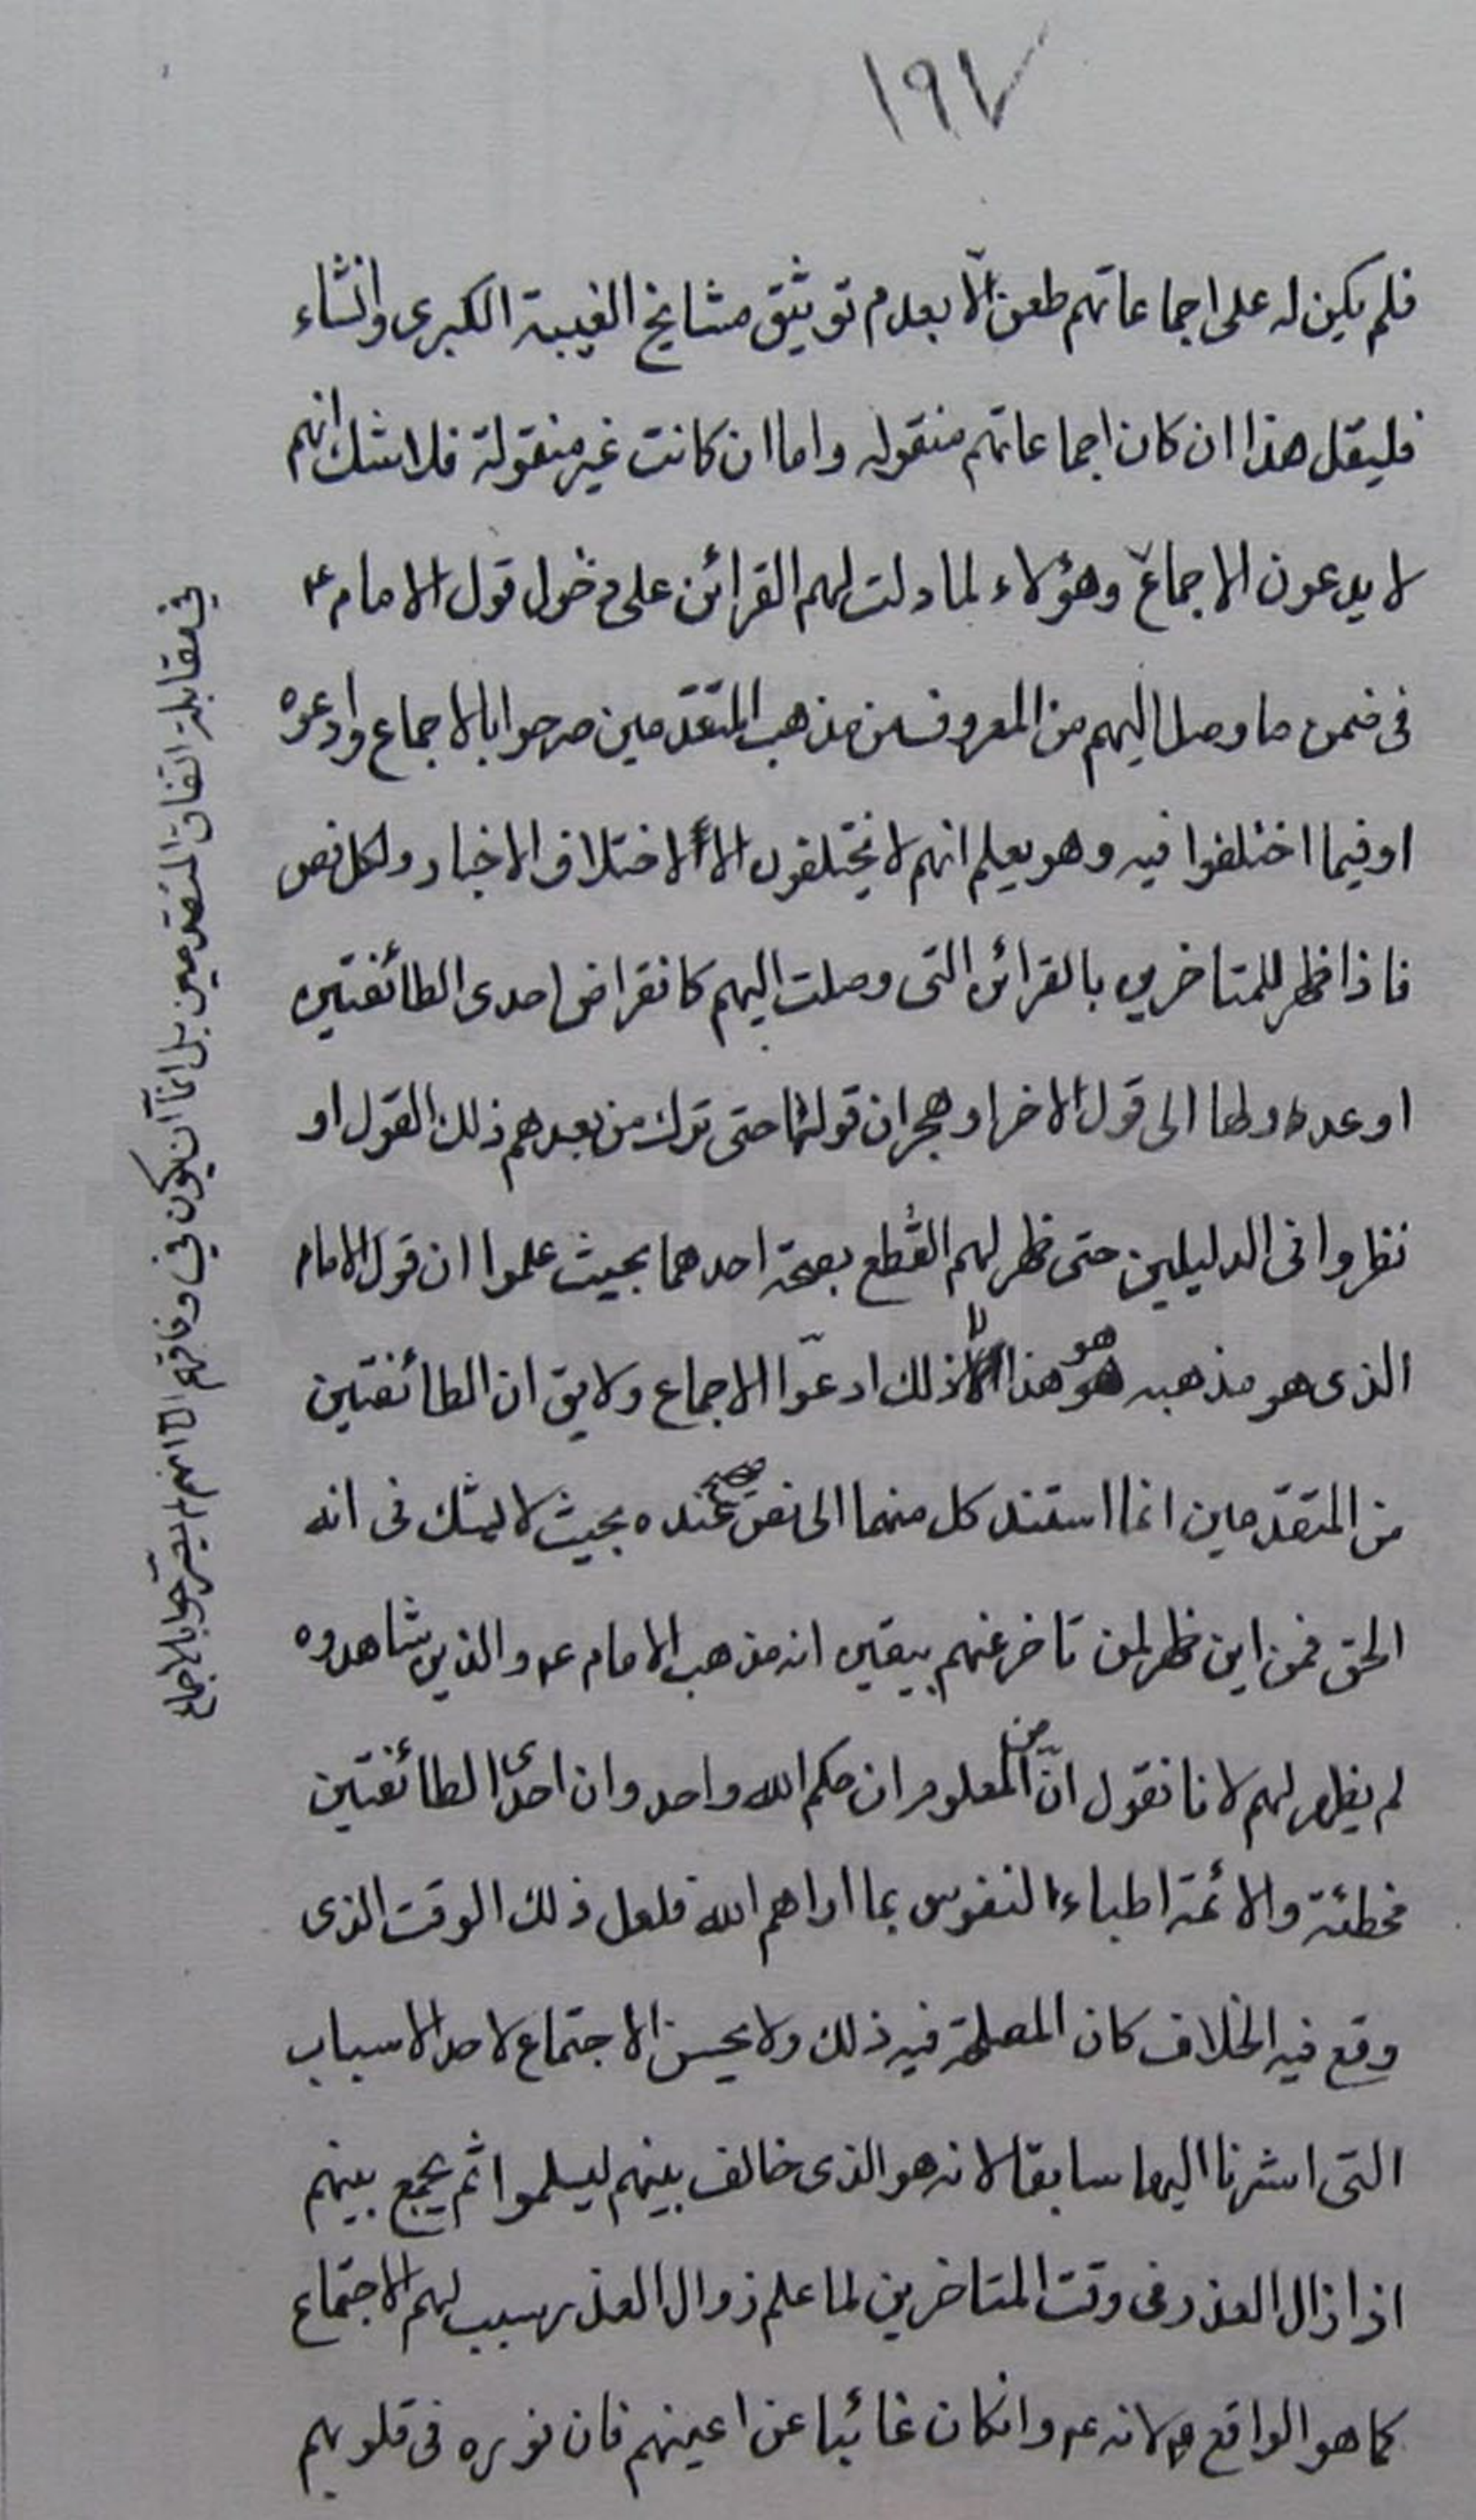 ١٩٧
فلم يكن له على اجماعاتهم طعن الّا بعدم توثيق مشايخ الغيبة الكبرى وان شاء
فليقل هذا ان كان اجماعاتهم منقوله واما ان كانت غير منقولة فلا شك انهم
لا يدعون الاجماع وهؤلاء لما دلت لهم القرائن على دخول قول الامام ع
فى ضمن ما وصل اليهم من المعروف من مذهب المتقدّمين صرحوا بالاجماع وادعوه
او فيما اختلفوا فيه وهو يعلم انهم لا يختلفون الا لاختلاف الاخبار ولكل نص
فاذا ظهر للمتاخرين بالقرائن التى وصلت اليهم كانقراض احدى الطائفتين
او عدولها الى قول الاخر او هجران قولها حتى ترك من بعدهم ذلك القول او
نظروا فى الدليلين حتى ظهر لهم القطع بصحة احدهما بحيث علموا ان قول الامام
الذى هو مذهبه هو هذا لا ذلك ادعّوا الاجماع ولا يق ان الطائفتين
من المتقدّمين انما استند كل منهما الى نص عنده بحيث لا يشك فى انه
الحق فمن اين ظهر لمن تاخر عنهم بيقين انه مذهب الامام ع والذين شاهدوه
لم يظهر لهم لانا نقول انّ من المعلوم ان حكم الله واحد وان احدى الطائفتين
مخطئة والائمة اطباء النفوس بما اراهم الله فلعل ذلك الوقت الذى
وقع فيه الخلاف كان المصلحة فيه ذلك ولا يحسن الاجتماع لاحد الاسباب
التى اشرنا اليها سابقا لانه هو الذى خالف بينهم ليسلموا ثم يجمع بينهم
اذا زال العذر وفى وقت المتاخرين لما علم زوال العذر سبب لهم الاجتماع
كما هو الواقع لانه ع وانكان غائبا عن اعينهم فان نوره فى قلوبهم
فى مقابلة اتفاق المتقدمين بل امّا ان يكون فى وفاقهم الا انهم لم يصرّحوا بالاجماع